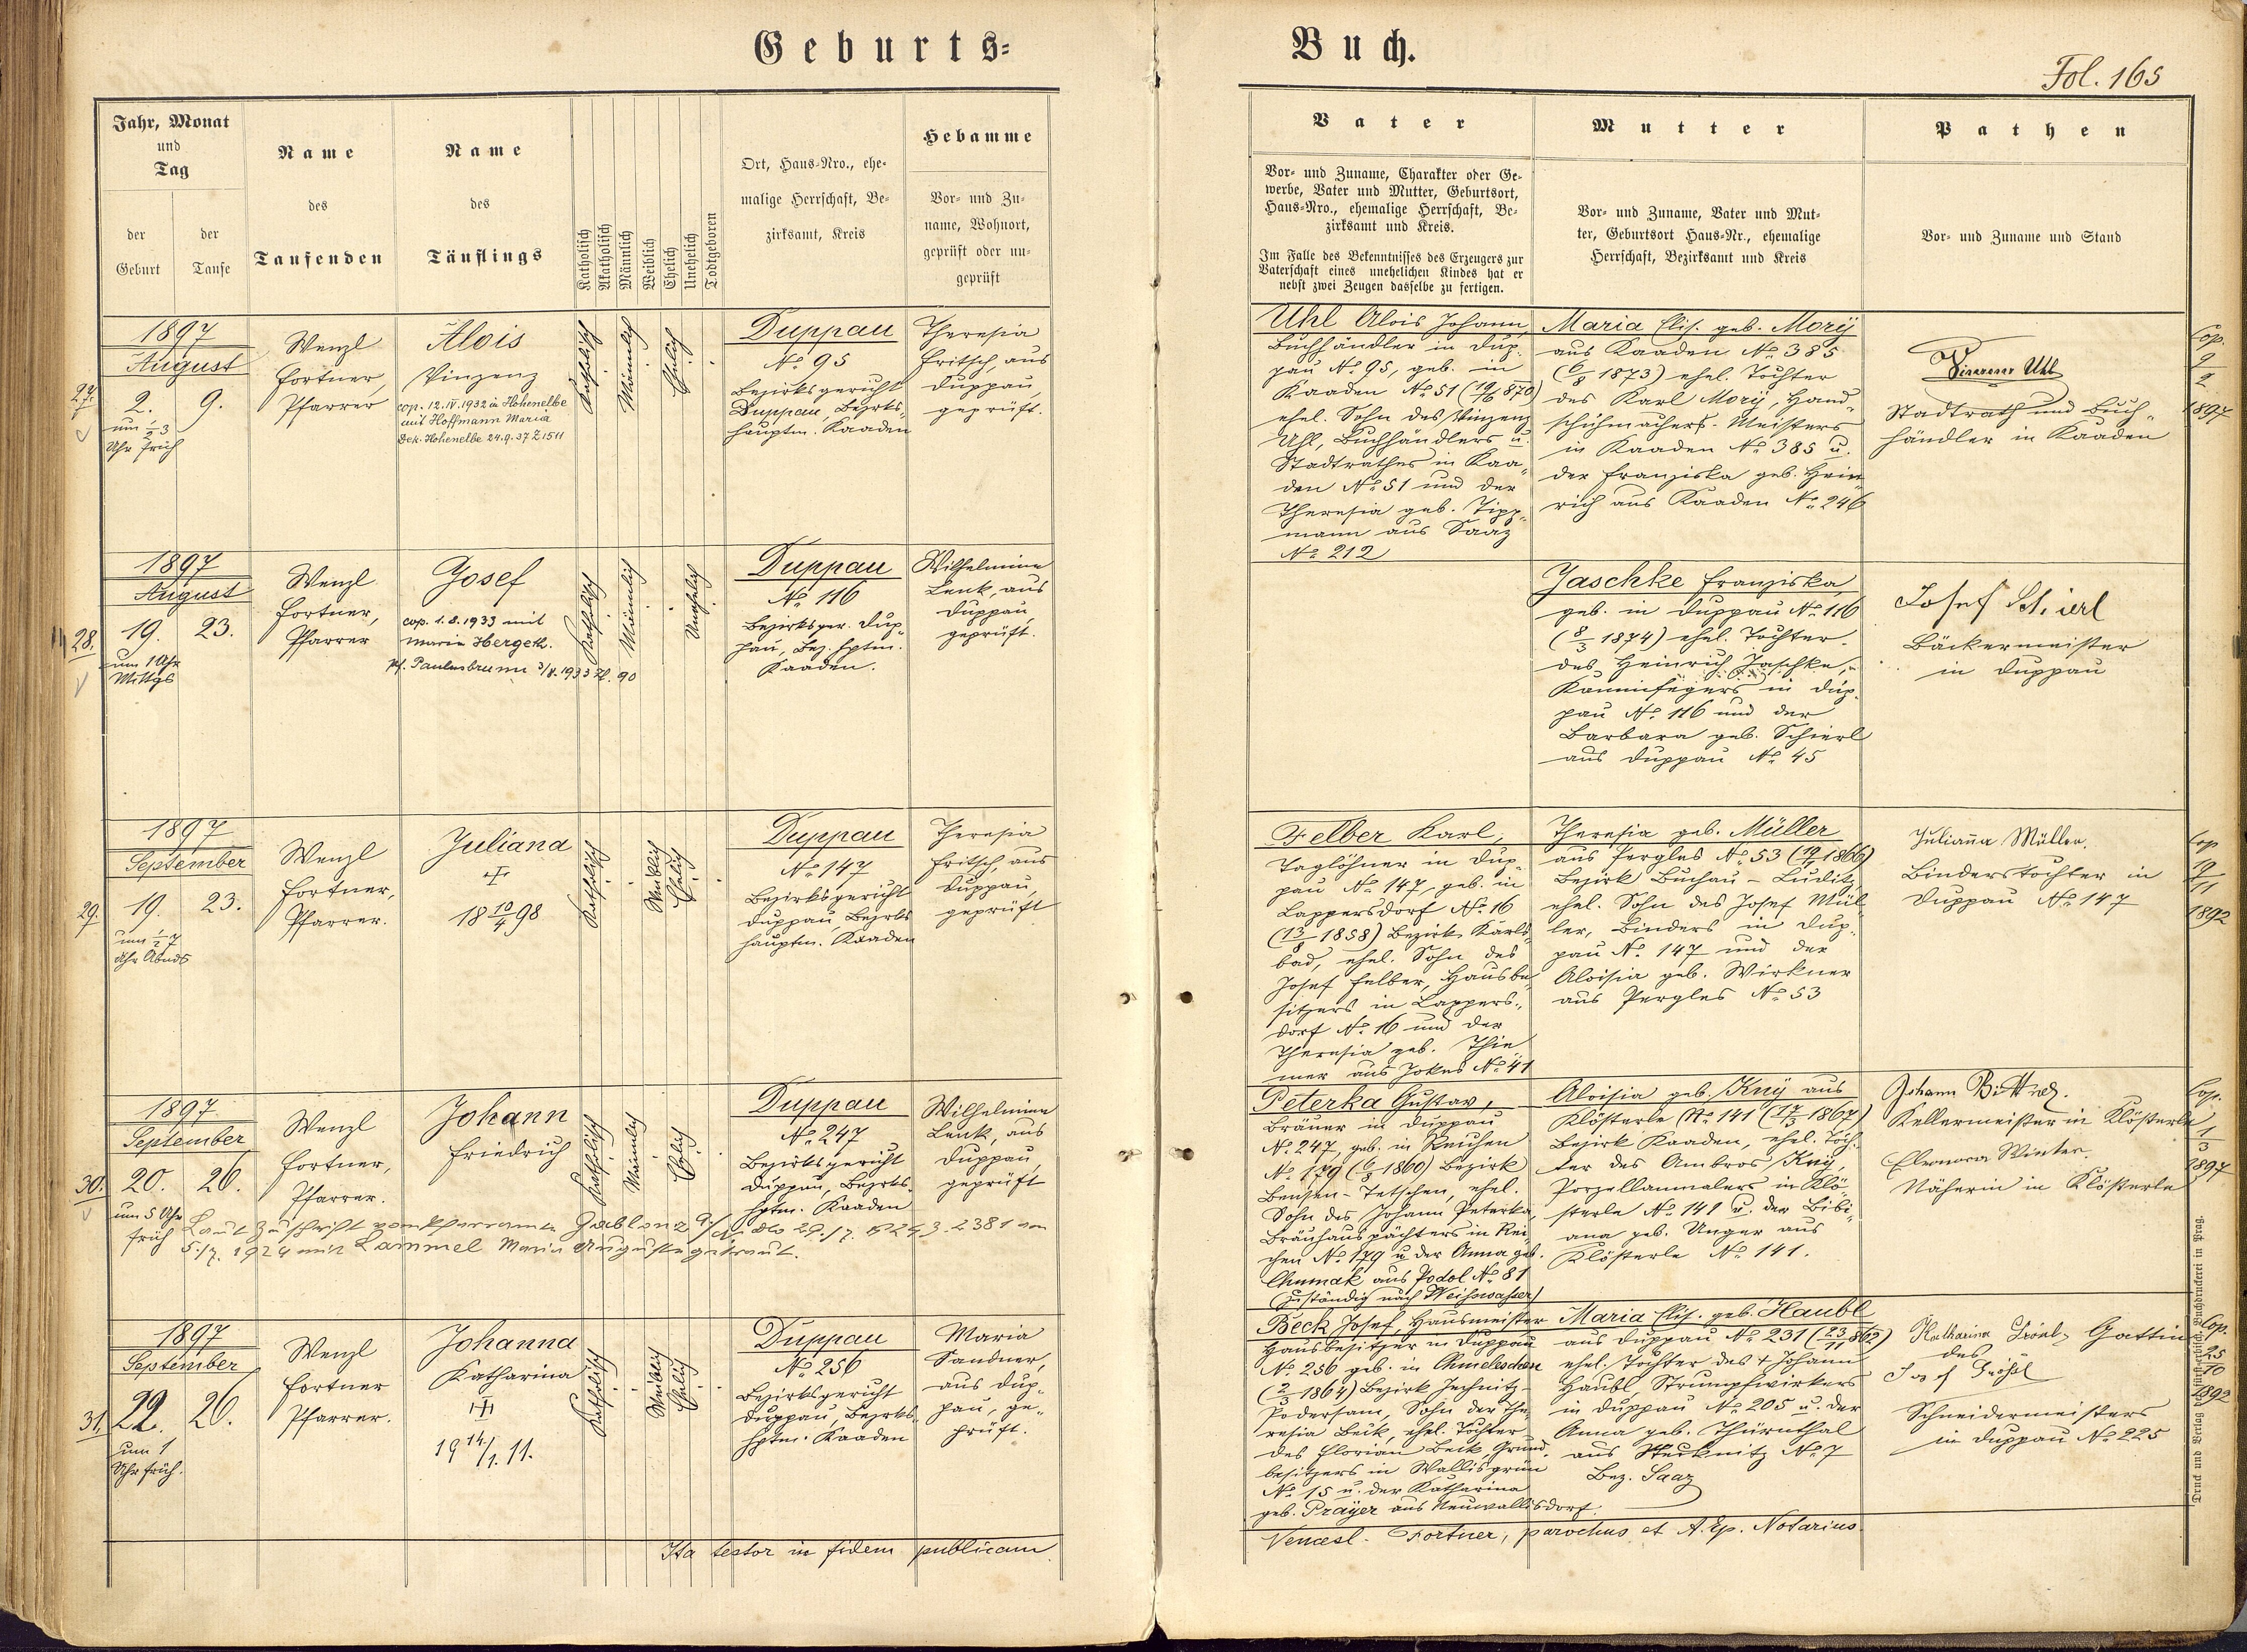 Geburts=
Buch.
Fol. 165
Jahr, Monat
und
Tag
der
Geburt
der
Taufe
Name
des
Taufenden
Name
des
Täuflings
Katholisch
Akatholisch
Männlich
Weiblich
Ehelich
Unehelich
Todtgeboren
Ort, Haus=Nro., ehe=
malige Herrschaft, Be=
zirksamt, Kreis
Hebamme
Vor= und Zu=
name, Wohnort,
geprüft oder un=
geprüft
Vater
Vor= und Zuname, Charakter oder Ge=
werbe, Vater und Mutter, Geburtsort,
Haus=Nro., ehemalige Herrschaft, Be=
zirksamt und Kreis.
Im Falle des Bekenntnisses des Erzeugers zur
Vaterschaft eines unehelichen Kindes hat er
nebst zwei Zeugen dasselbe zu fertigen.
Mutter
Vor= und Zuname, Vater und Mut=
ter, Geburtsort Haus=Nr., ehemalige
Herrschaft, Bezirksamt und Kreis
Pathen
Vor= und Zuname und Stand
27.
1897
August
2. 9.
um ½3
Uhr früh
Wenzl
Fortner,
Pfarrer
Alois
Vinzenz
cop. 12.IV.1932 in Hohenelbe
mit Hoffmann Maria
Dek. Hohenelbe 24.9.37 Z 1511
Katholisch
Männlich
Ehelich
Duppau
No 95
Bezirksgericht
Duppau, Bezirks-
hauptm. Kaaden
Theresia
Fritsch, aus
Duppau,
geprüft.
Uhl Alois Johann,
Buchhändler in Dup-
pau No 95, geb. in
Kaaden No 51 (19/6 870)
ehel. Sohn des Vinzenz
Uhl, Buchhändlers u.
Stadtrathes in Kaa-
den No 51 und der
Theresia geb. Tipp-
mann aus Saaz
No 212
Maria Elis. geb. Morÿ
aus Kaaden No 385
(6/8 1873) ehel. Tochter
des Karl Morÿ, Hand-
schuhmachers-Meisters
in Kaaden No 385 u.
der Franziska geb. Hein-
rich aus Kaaden No 246
Vinzenz Uhl
Stadtrath und Buch-
händler in Kaaden
Cop.
9/2
1897
28.
1897
August
19. 23.
um 1 Uhr
Mittgs
Wenzl
Fortner,
Pfarrer
Josef
cop. 1.8.1933 mit
Maria Hergeth.
Pf. Paulusbrunn 3/8.1933 Zl. 90
Katholisch
Männlich
Unehelich
Duppau
No 116
Bezirksger. Dup-
pau, Bez. Hptm.
Kaaden.
Wilhelmine
Lenk, aus
Duppau,
geprüft.
Jaschke Franziska,
geb. in Duppau No 116
(8/3 1874) ehel. Tochter
des Heinrich Jaschke,
Kaminfegers in Dup-
pau No 116 und der
Barbara geb. Schierl
aus Duppau No 45
Josef Schierl
Bäckermeister
in Duppau
29.
1897
September
19. 23.
um ½7
Uhr Abnds
Wenzl
Fortner,
Pfarrer.
Juliana
18 10/4 98
Katholisch
Weiblich
Ehelich
Duppau
No 147
Bezirksgericht
Duppau, Bezirks
hauptm. Kaaden
Theresia
Fritsch, aus
Duppau,
geprüft
Felber Karl,
Taglöhner in Dup-
pau No 147, geb. in
Lappersdorf No 16
(13/8 1858) Bezirk Karls-
bad, ehel. Sohn des
Josef Felber, Hausbe-
sitzers in Lappers-
dorf No 16 und der
Theresia geb. Thie-
mer aus Jokes No 41
Theresia geb. Müller
aus Pergles No 53 (19/7 1866)
Bezirk Buchau-Luditz,
ehel. Sohn des Josef Mül-
ler, Binders in Dup-
pau No 147 und der
Aloisia geb. Wirkner
aus Pergles No 53
Julianna Müller.
Binderstochter in
Duppau No 147
Cop
19/11
1892
30.
1897
September
20. 26.
um 5 Uhr
früh
Wenzl
Fortner,
Pfarrer.
Johann
Friedrich
Katholisch
Männlich
Ehelich
Duppau
No 247
Bezirksgericht
Duppau, Bezirks-
hptm. Kaaden
Wilhelmine
Lenk, aus
Duppau,
geprüft
Laut Zuschrift vom Pfarramte Gablonz a/N dto 29./7. 1924 Z. 2381 am
5./7. 1924 mit Lammel Maria Auguste getraut.
Peterka Gustav,
Bräuer in Duppau
No 247, geb. in Reichen
No 179 (6/8 1860) Bezirk
Bensen-Tetschen, ehel.
Sohn des Johann Peterka,
Bräuhauspächters in Rei-
chen No 179 u. der Anna geb.
Chumak aus Podol No 81
(zuständig nach Weisswasser)
Aloisia geb. Knÿ aus
Klösterle No 141 (17/3 1867)
Bezirk Kaaden, ehel. Toch-
ter des Ambros Knÿ,
Porzellanmalers in Klö-
sterle No 141 u. der Bibi-
ana geb. Unger aus
Klösterle No 141.
Johann Bittner.
Kellermeister in Klösterle
Eleonora Winter.
Näherin in Klösterle
Cop.
1/3
1897
31.
1897
September
22. 26.
um 1
Uhr früh.
Wenzl
Fortner
Pfarrer.
Johanna
Katharina
19 14/1. 11.
Katholisch
Weiblich
Ehelich
Duppau
No 256
Bezirksgericht
Duppau, Bezirks-
hptm. Kaaden
Maria
Sandner,
aus Dup-
pau, ge-
prüft.
Beck Josef, Hausmeister
Hausbesitzer in Duppau
No 256 geb. in Chmeleschen
(2/3 1864) Bezirk Jechnitz-
Podersam, Sohn der The-
resia Beck, ehel. Tochter
des Florian Beck, Grund-
besitzers in Wallisgrün
No 15 u. der Katharina
geb. Praÿer aus Neuwallisdorf.
Maria Elis. geb. Haubl
aus Duppau No 231 (23/11 862)
ehel. Tochter des + Johann
Haubl, Strumpfwirkers
in Duppau No 205 u. der
Anna geb. Thürnthal
aus Stecknitz No 7
Bez. Saaz
Katharina Gattin
des
Josef Größl
Schneidermeisters
in Duppau No 225
Cop.
25/10
1892
Ita testor in fidem publicam.
Vencesl. Fortner, parochus et A. Ep. Notarius.